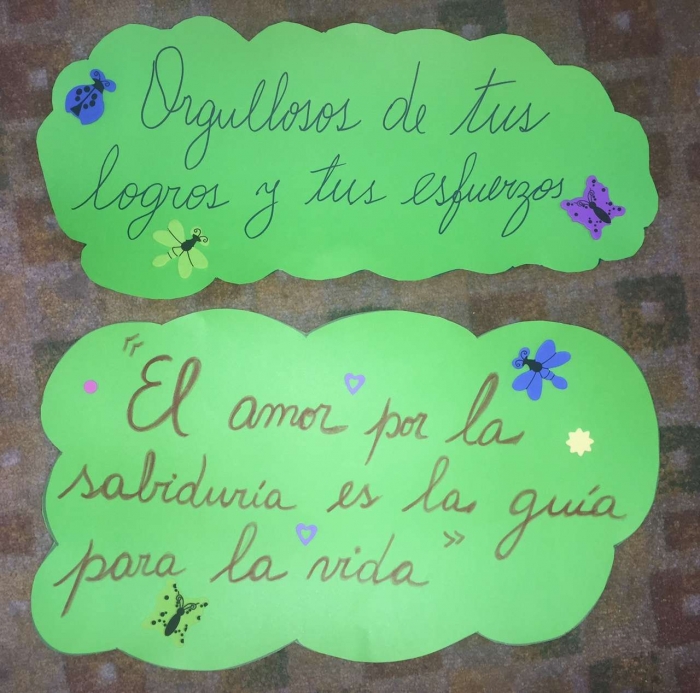 Orgullosos de tus
logros y tus esfuerzos
"El amor por la
sabiduría es la guía
para la vida"